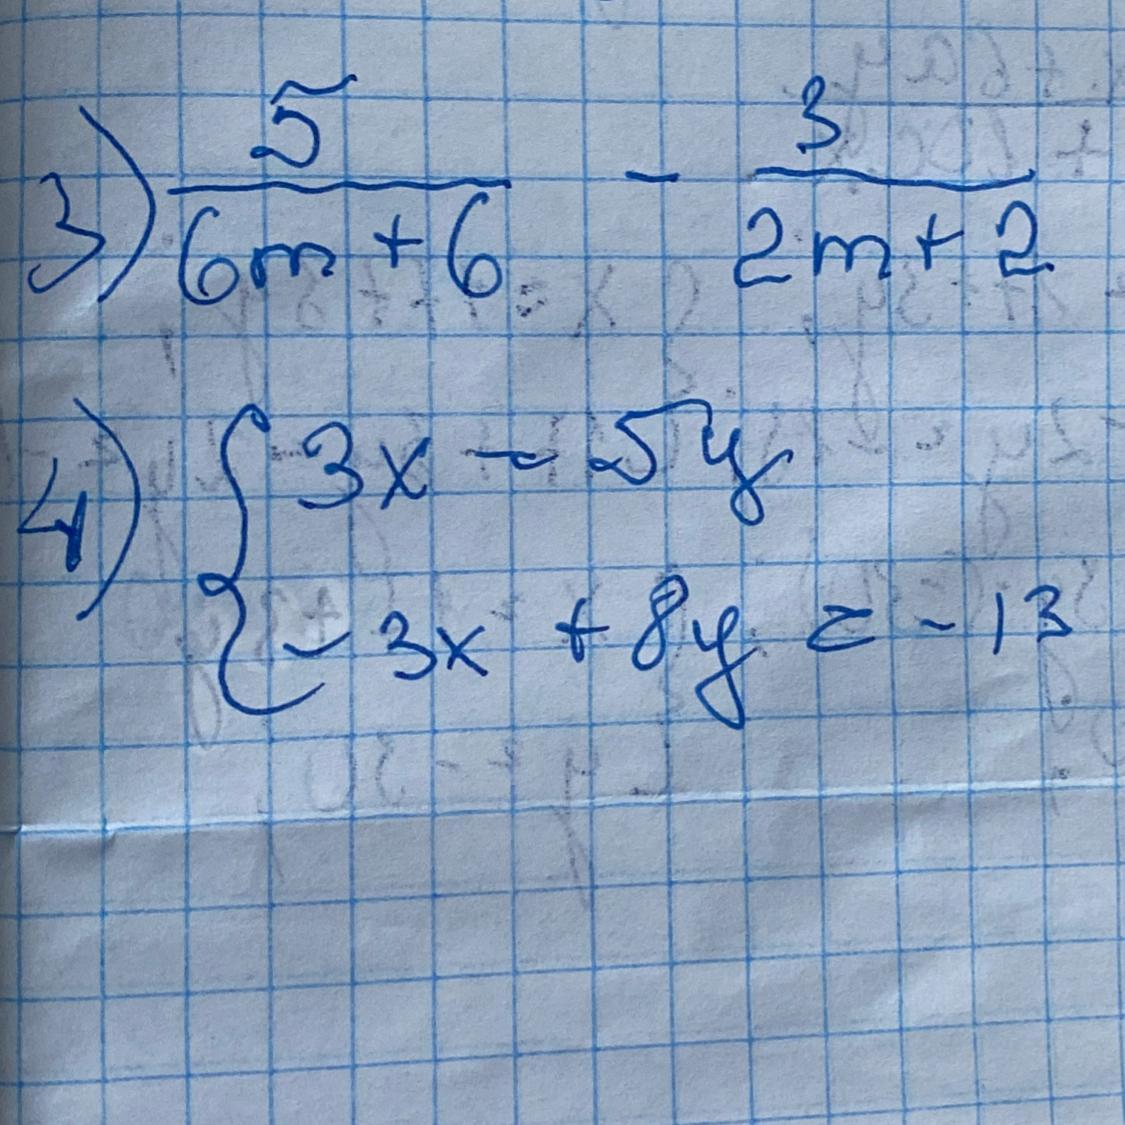 3) 5/(6m + 6) - 3/(2m + 2)
4) { 3x - 5y
- 3x + 8y = - 13